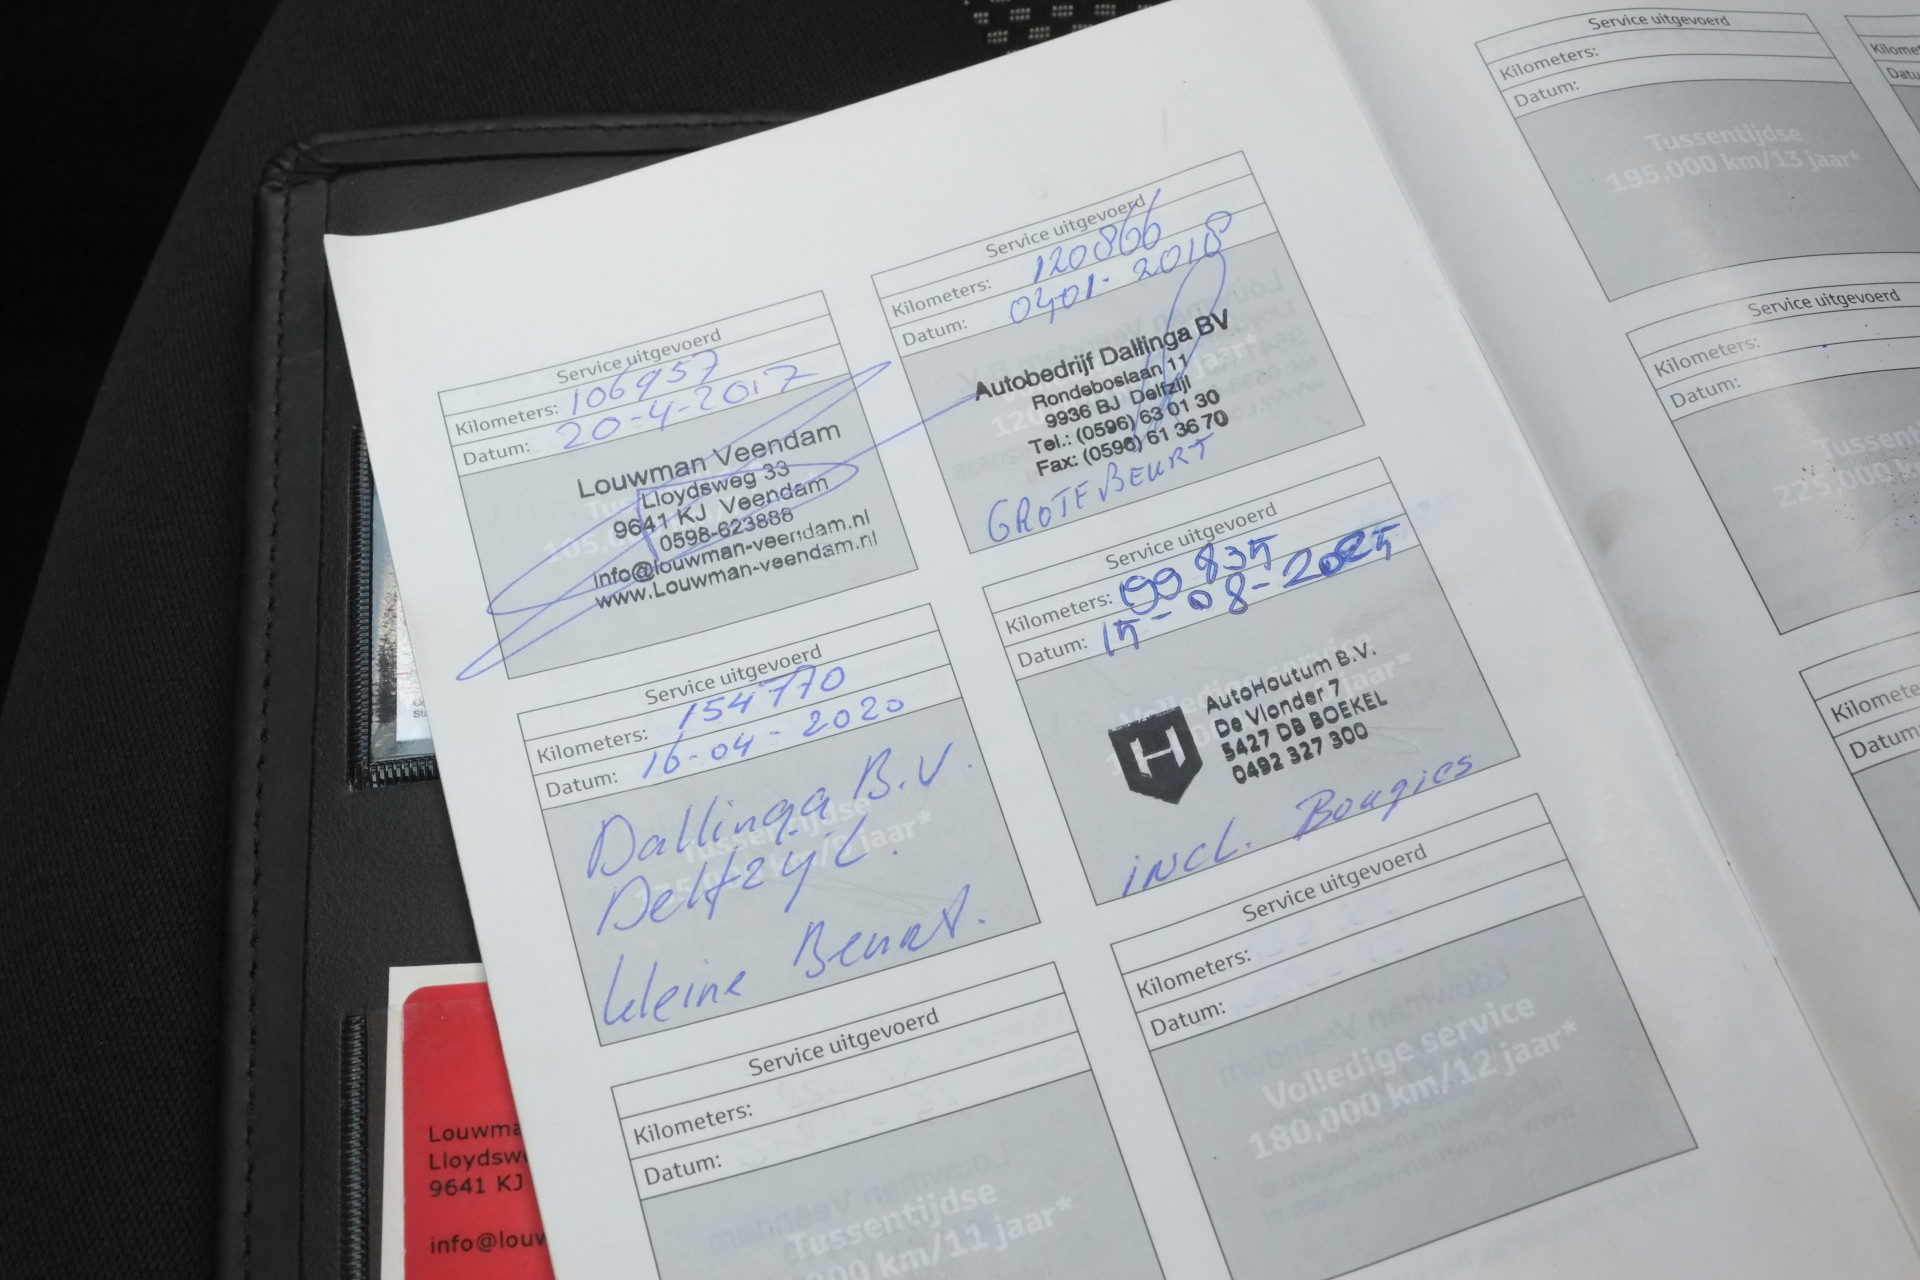 Service uitgevoerd
Kilometers: 106957
Datum: 20-4-2017
Louwman Veendam
Lloydsweg 33
9641 KJ Veendam
0598-623888
info@louwman-veendam.nl
www.Louwman-veendam.nl
Service uitgevoerd
Kilometers: 120866
Datum: 0401-2018
Autobedrijf Dallinga BV
Rondeboslaan 11
9936 BJ Delfzijl
Tel.: (0596) 63 01 30
Fax: (0596) 61 36 70
GROTE BEURT
Service uitgevoerd
Kilometers: 154770
Datum: 16-04-2020
Dallinga B.V.
Delfzijl.
kleine Beurt.
Service uitgevoerd
Kilometers: 835
Datum: 15-08-2025
AutoHoutum B.V.
De Vlonder 7
5427 DB BOEKEL
0492 327 300
H
incl. Bougies
Service uitgevoerd
Kilometers:
Datum:
Tussentijdse
000 km/11 jaar*
Service uitgevoerd
Kilometers:
Datum:
Volledige service
180,000 km/12 jaar*
Service uitgevoerd
Kilometers:
Datum:
Tussentijdse
195,000 km/13 jaar*
Service uitgevoerd
Kilometers:
Datum:
225,000
Kilomete
Datum
Kilome
Datu
Louwma
Lloydsw
9641 KJ
info@louw